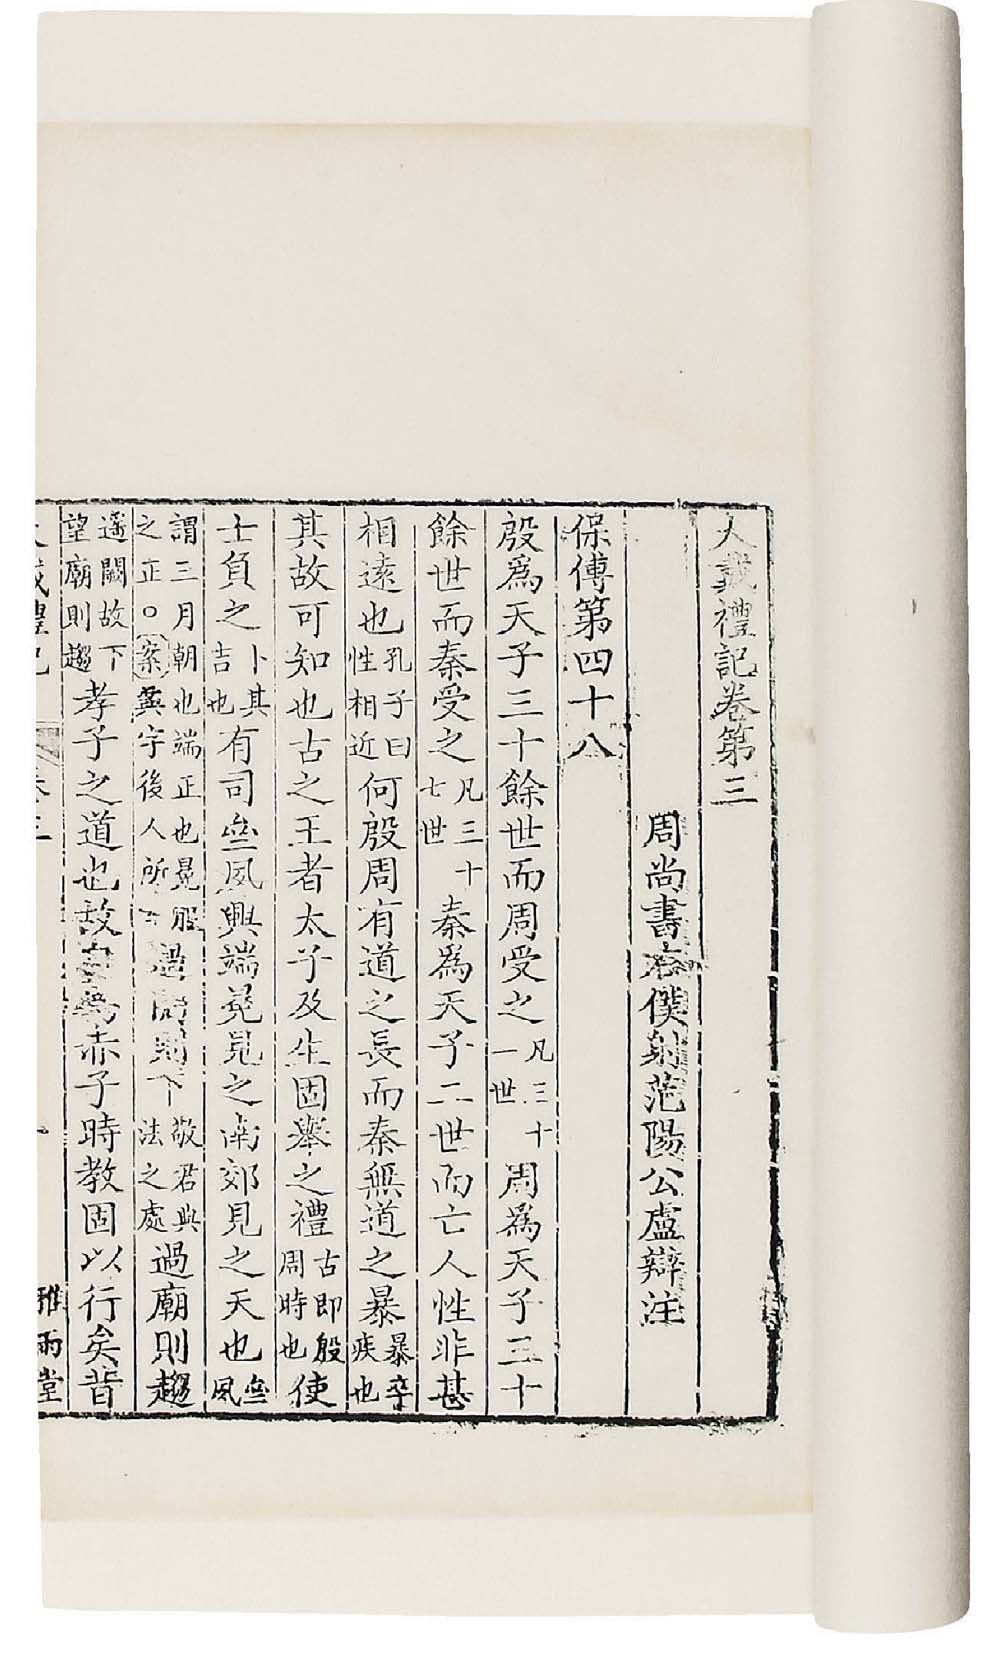 大戴禮記卷第三
周尚書右僕射范陽公盧辯注
保傅第四十八
殷爲天子三十餘世而周受之凡三十一世周爲天子三十
餘世而秦受之凡三十七世秦爲天子二世而亡人性非甚
相遠也孔子曰性相近何殷周有道之長而秦無道之暴暴卒疾也
其故可知也古之王者太子及生固舉之禮古即殷周時也使
士負之卜其吉也有司叅夙興端冕見之南郊見之天也叅夙
謂三月朝也端正也冕服之正○案冕字後人所過闕則下敬君與法之處過廟則趨
遥闕故下望廟則趨孝子之道也故自爲赤子時教固以行矣昔
大戴禮記 卷三 一 雅雨堂